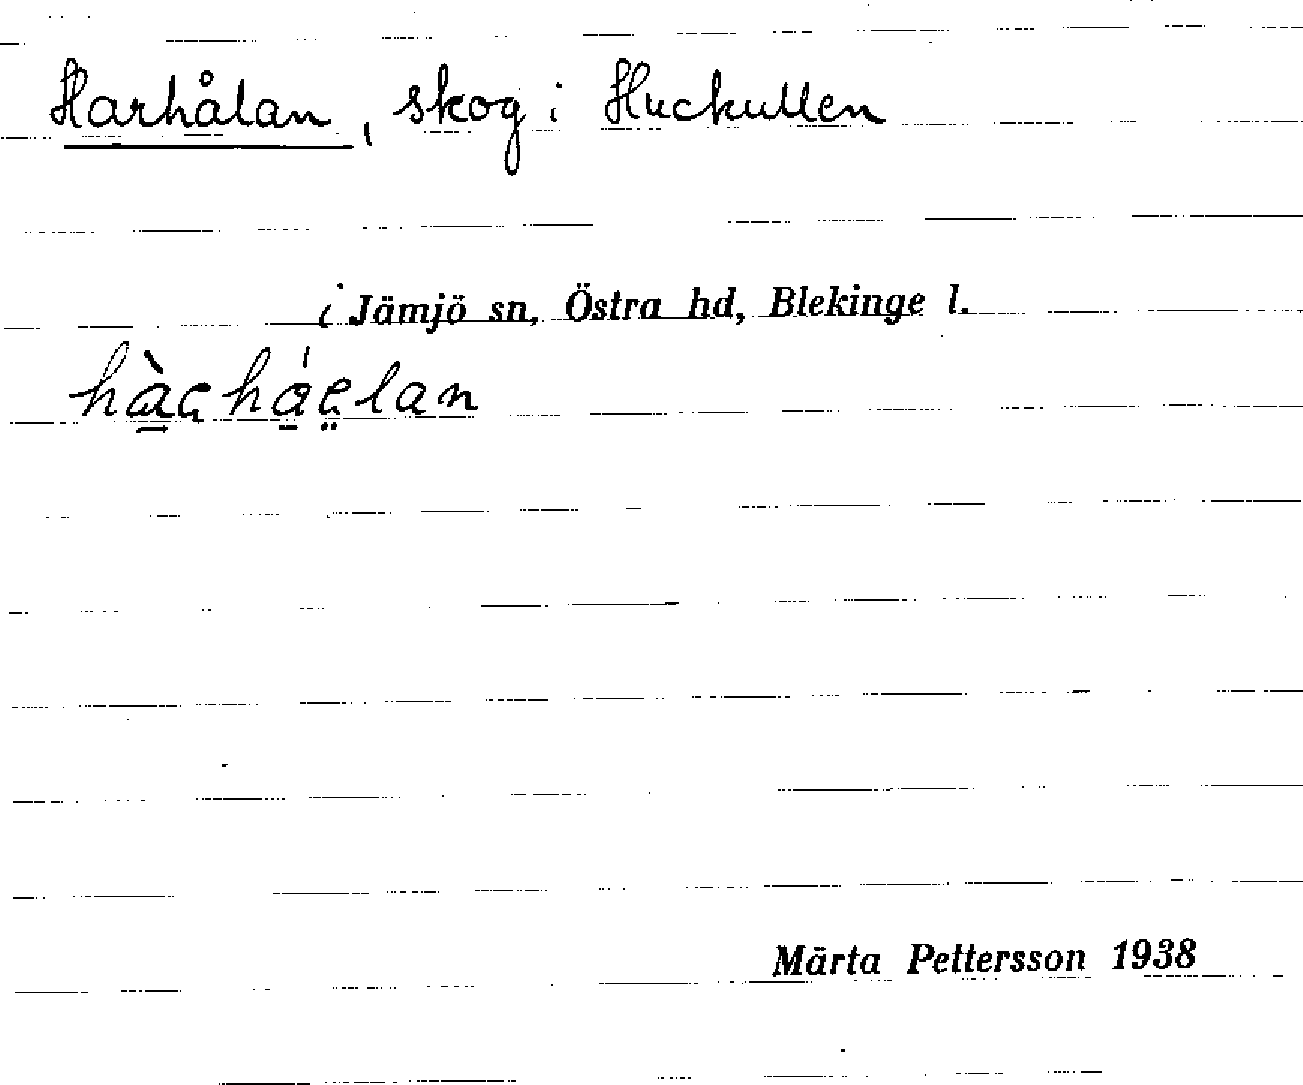 Harhålan, skog i Huckullen
i Jämjö sn, Östra hd, Blekinge l.
Märta Pettersson 1938